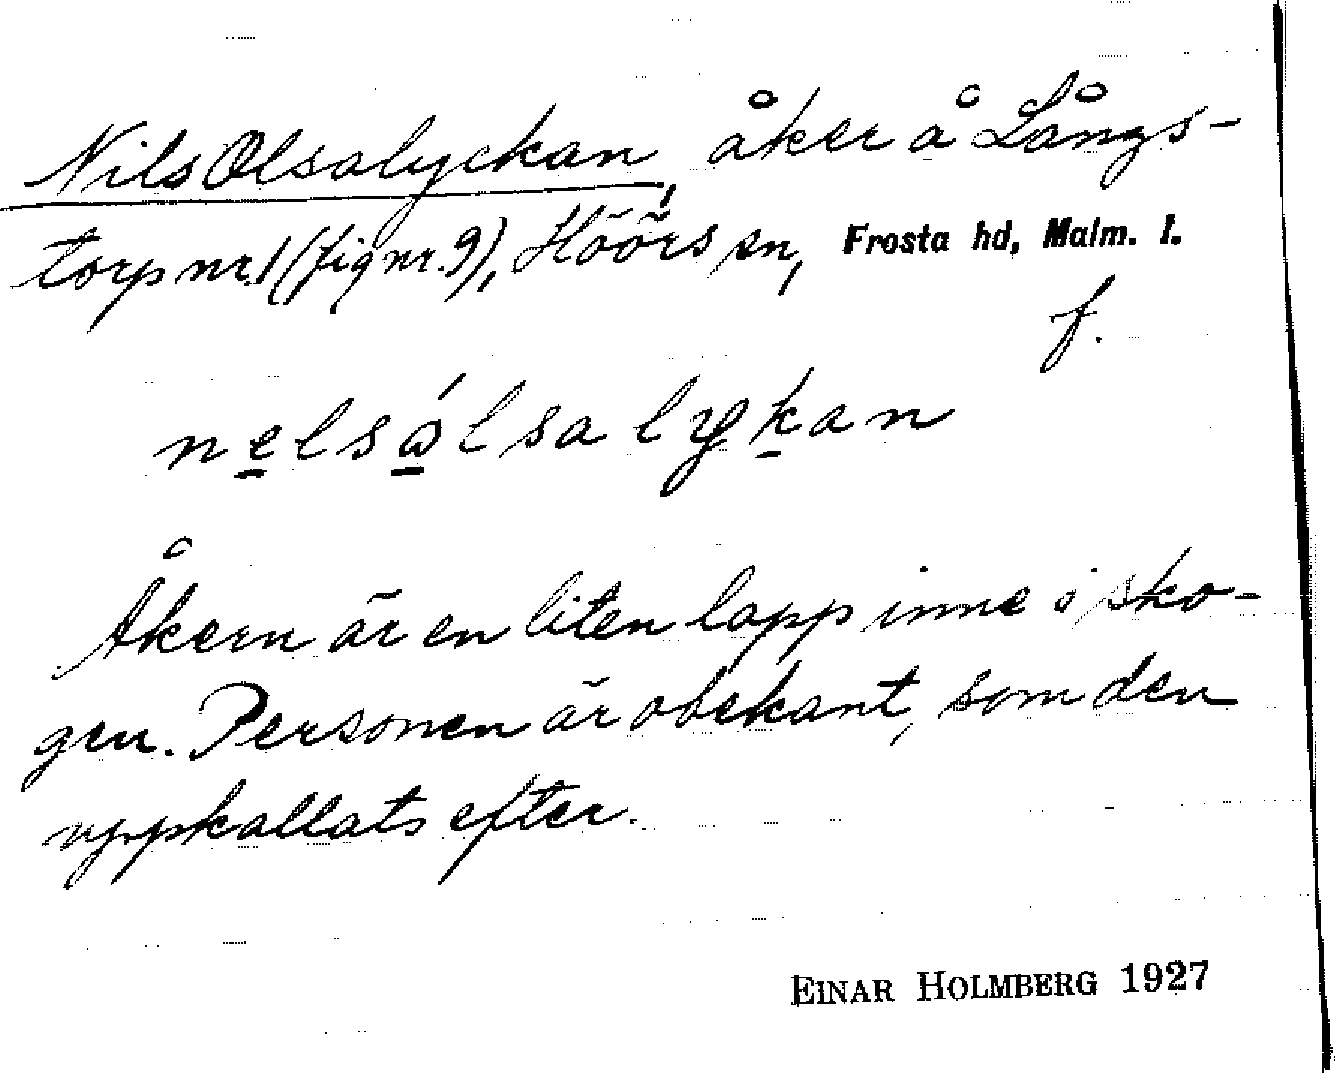 Nils Olsalyckan, åker å Långs-
torp nr. 1 (fig nr. 9), Höörs sn, Frosta hd, Malm. l.
f.
nelsólsalykan
Åkern är en liten lapp inne i sko-
gen. Personen är obekant, som den
uppkallats efter.
EINAR HOLMBERG 1927